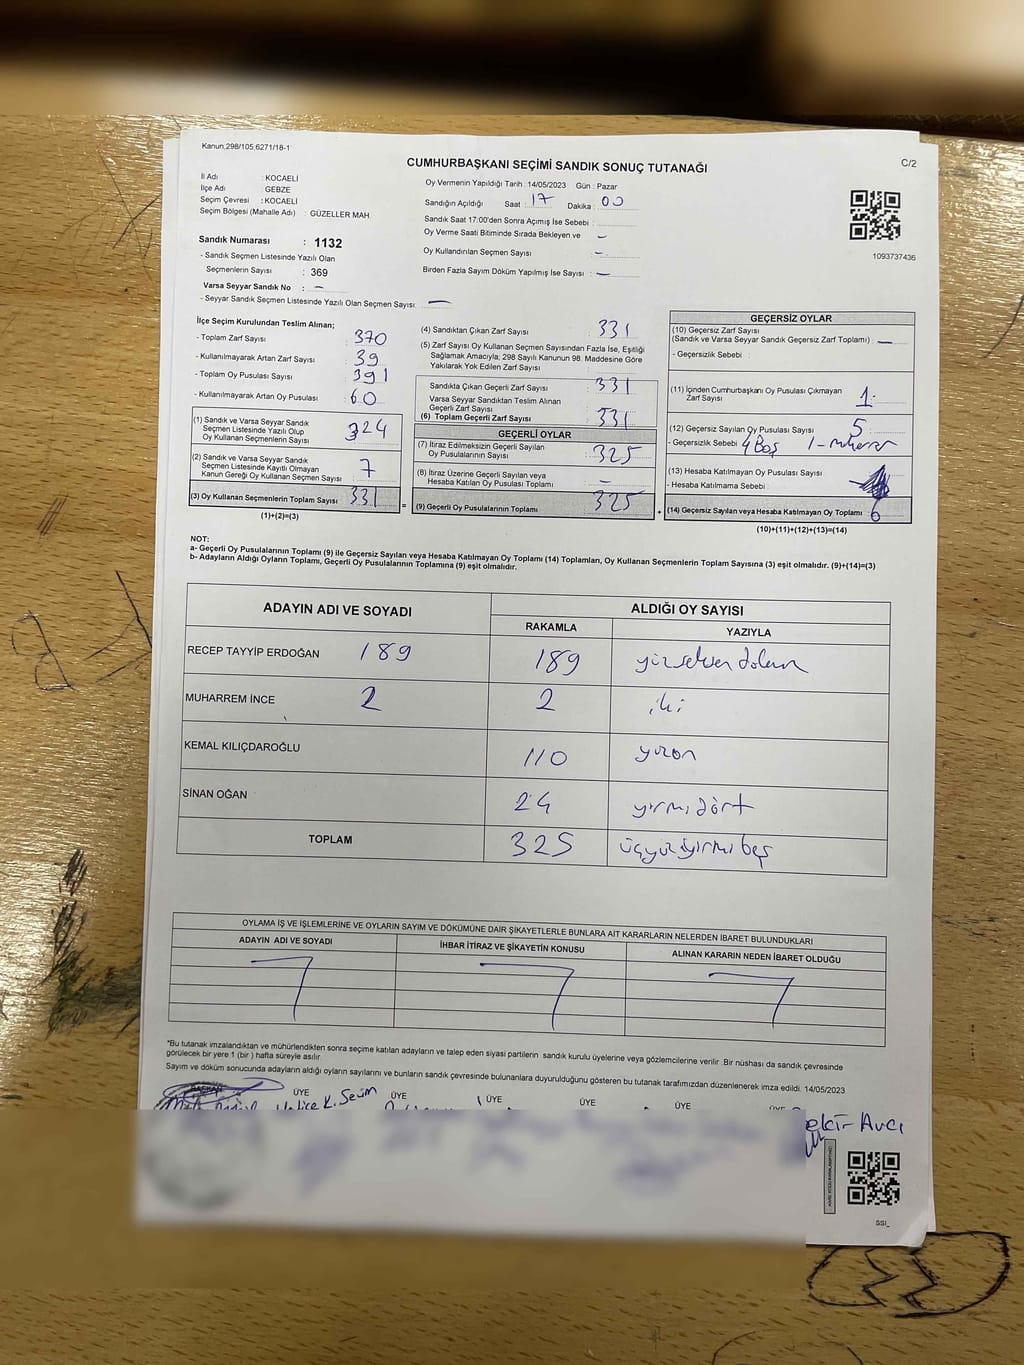 Kanun;298/105;6271/18-1
CUMHURBAŞKANI SEÇİMİ SANDIK SONUÇ TUTANAĞI
C/2
İl Adı : KOCAELİ
İlçe Adı : GEBZE
Seçim Çevresi : KOCAELİ
Seçim Bölgesi (Mahalle Adı) : GÜZELLER MAH.
Sandık Numarası : 1132
- Sandık Seçmen Listesinde Yazılı Olan
Seçmenlerin Sayısı : 369
Varsa Seyyar Sandık No : –
- Seyyar Sandık Seçmen Listesinde Yazılı Olan Seçmen Sayısı: –
Oy Vermenin Yapıldığı Tarih : 14/05/2023 Gün : Pazar
Sandığın Açıldığı Saat : 17 Dakika : 00
Sandık Saat 17:00'den Sonra Açımış İse Sebebi :
Oy Verme Saati Bitiminde Sırada Bekleyen ve –
Oy Kullandırılan Seçmen Sayısı : –
Birden Fazla Sayım Döküm Yapılmış İse Sayısı : –
1093737436
İlçe Seçim Kurulundan Teslim Alınan;
- Toplam Zarf Sayısı : 370
- Kullanılmayarak Artan Zarf Sayısı : 39
- Toplam Oy Pusulası Sayısı : 391
- Kullanılmayarak Artan Oy Pusulası : 60
(1) Sandık ve Varsa Seyyar Sandık
Seçmen Listesinde Yazılı Olup
Oy Kullanan Seçmenlerin Sayısı : 324
(2) Sandık ve Varsa Seyyar Sandık
Seçmen Listesinde Kayıtlı Olmayan
Kanun Gereği Oy Kullanan Seçmen Sayısı : 7
(3) Oy Kullanan Seçmenlerin Toplam Sayısı : 331
(1)+(2)=(3)
=
(4) Sandıktan Çıkan Zarf Sayısı : 331
(5) Zarf Sayısı Oy Kullanan Seçmen Sayısından Fazla İse, Eşitliği
Sağlamak Amacıyla; 298 Sayılı Kanunun 98. Maddesine Göre
Yakılarak Yok Edilen Zarf Sayısı :
Sandıkta Çıkan Geçerli Zarf Sayısı : 331
Varsa Seyyar Sandıktan Teslim Alınan
Geçerli Zarf Sayısı :
(6) Toplam Geçerli Zarf Sayısı : 331
GEÇERLİ OYLAR
(7) İtiraz Edilmeksizin Geçerli Sayılan
Oy Pusulalarının Sayısı : 325
(8) İtiraz Üzerine Geçerli Sayılan veya
Hesaba Katılan Oy Pusulası Toplamı : –
(9) Geçerli Oy Pusulalarının Toplamı : 325
+
GEÇERSİZ OYLAR
(10) Geçersiz Zarf Sayısı
(Sandık ve Varsa Seyyar Sandık Geçersiz Zarf Toplamı) : –
- Geçersizlik Sebebi :
(11) İçinden Cumhurbaşkanı Oy Pusulası Çıkmayan
Zarf Sayısı : 1
(12) Geçersiz Sayılan Oy Pusulası Sayısı : 5
- Geçersizlik Sebebi : 4 Boş 1-
(13) Hesaba Katılmayan Oy Pusulası Sayısı :
- Hesaba Katılmama Sebebi :
(14) Geçersiz Sayılan veya Hesaba Katılmayan Oy Toplamı : 6
(10)+(11)+(12)+(13)=(14)
NOT:
a- Geçerli Oy Pusulalarının Toplamı (9) ile Geçersiz Sayılan veya Hesaba Katılmayan Oy Toplamı (14) Toplamları, Oy Kullanan Seçmenlerin Toplam Sayısına (3) eşit olmalıdır. (9)+(14)=(3)
b- Adayların Aldığı Oyların Toplamı, Geçerli Oy Pusulalarının Toplamına (9) eşit olmalıdır.
ADAYIN ADI VE SOYADI ALDIĞI OY SAYISI
RAKAMLA YAZIYLA
RECEP TAYYİP ERDOĞAN 189 189 yüzseksendokuz
MUHARREM İNCE 2 2 iki
KEMAL KILIÇDAROĞLU 110 yüzon
SİNAN OĞAN 24 yirmidört
TOPLAM 325 üçyüzyirmibeş
OYLAMA İŞ VE İŞLEMLERİNE VE OYLARIN SAYIM VE DÖKÜMÜNE DAİR ŞİKAYETLERLE BUNLARA AİT KARARLARIN NELERDEN İBARET BULUNDUKLARI
ADAYIN ADI VE SOYADI İHBAR İTİRAZ VE ŞİKAYETİN KONUSU ALINAN KARARIN NEDEN İBARET OLDUĞU
*Bu tutanak imzalandıktan ve mühürlendikten sonra seçime katılan adayların ve talep eden siyasi partilerin sandık kurulu üyelerine veya gözlemcilerine verilir .Bir nüshası da sandık çevresinde
görülecek bir yere 1 (bir ) hafta süreyle asılır.
Sayım ve döküm sonucunda adayların aldığı oyların sayılarını ve bunların sandık çevresinde bulunanlara duyurulduğunu gösteren bu tutanak tarafımızdan düzenlenerek imza edildi. 14/05/2023
BAŞKAN ÜYE ÜYE ÜYE ÜYE ÜYE ÜYE
Hatice K. Seçim
Avcı
SSI_